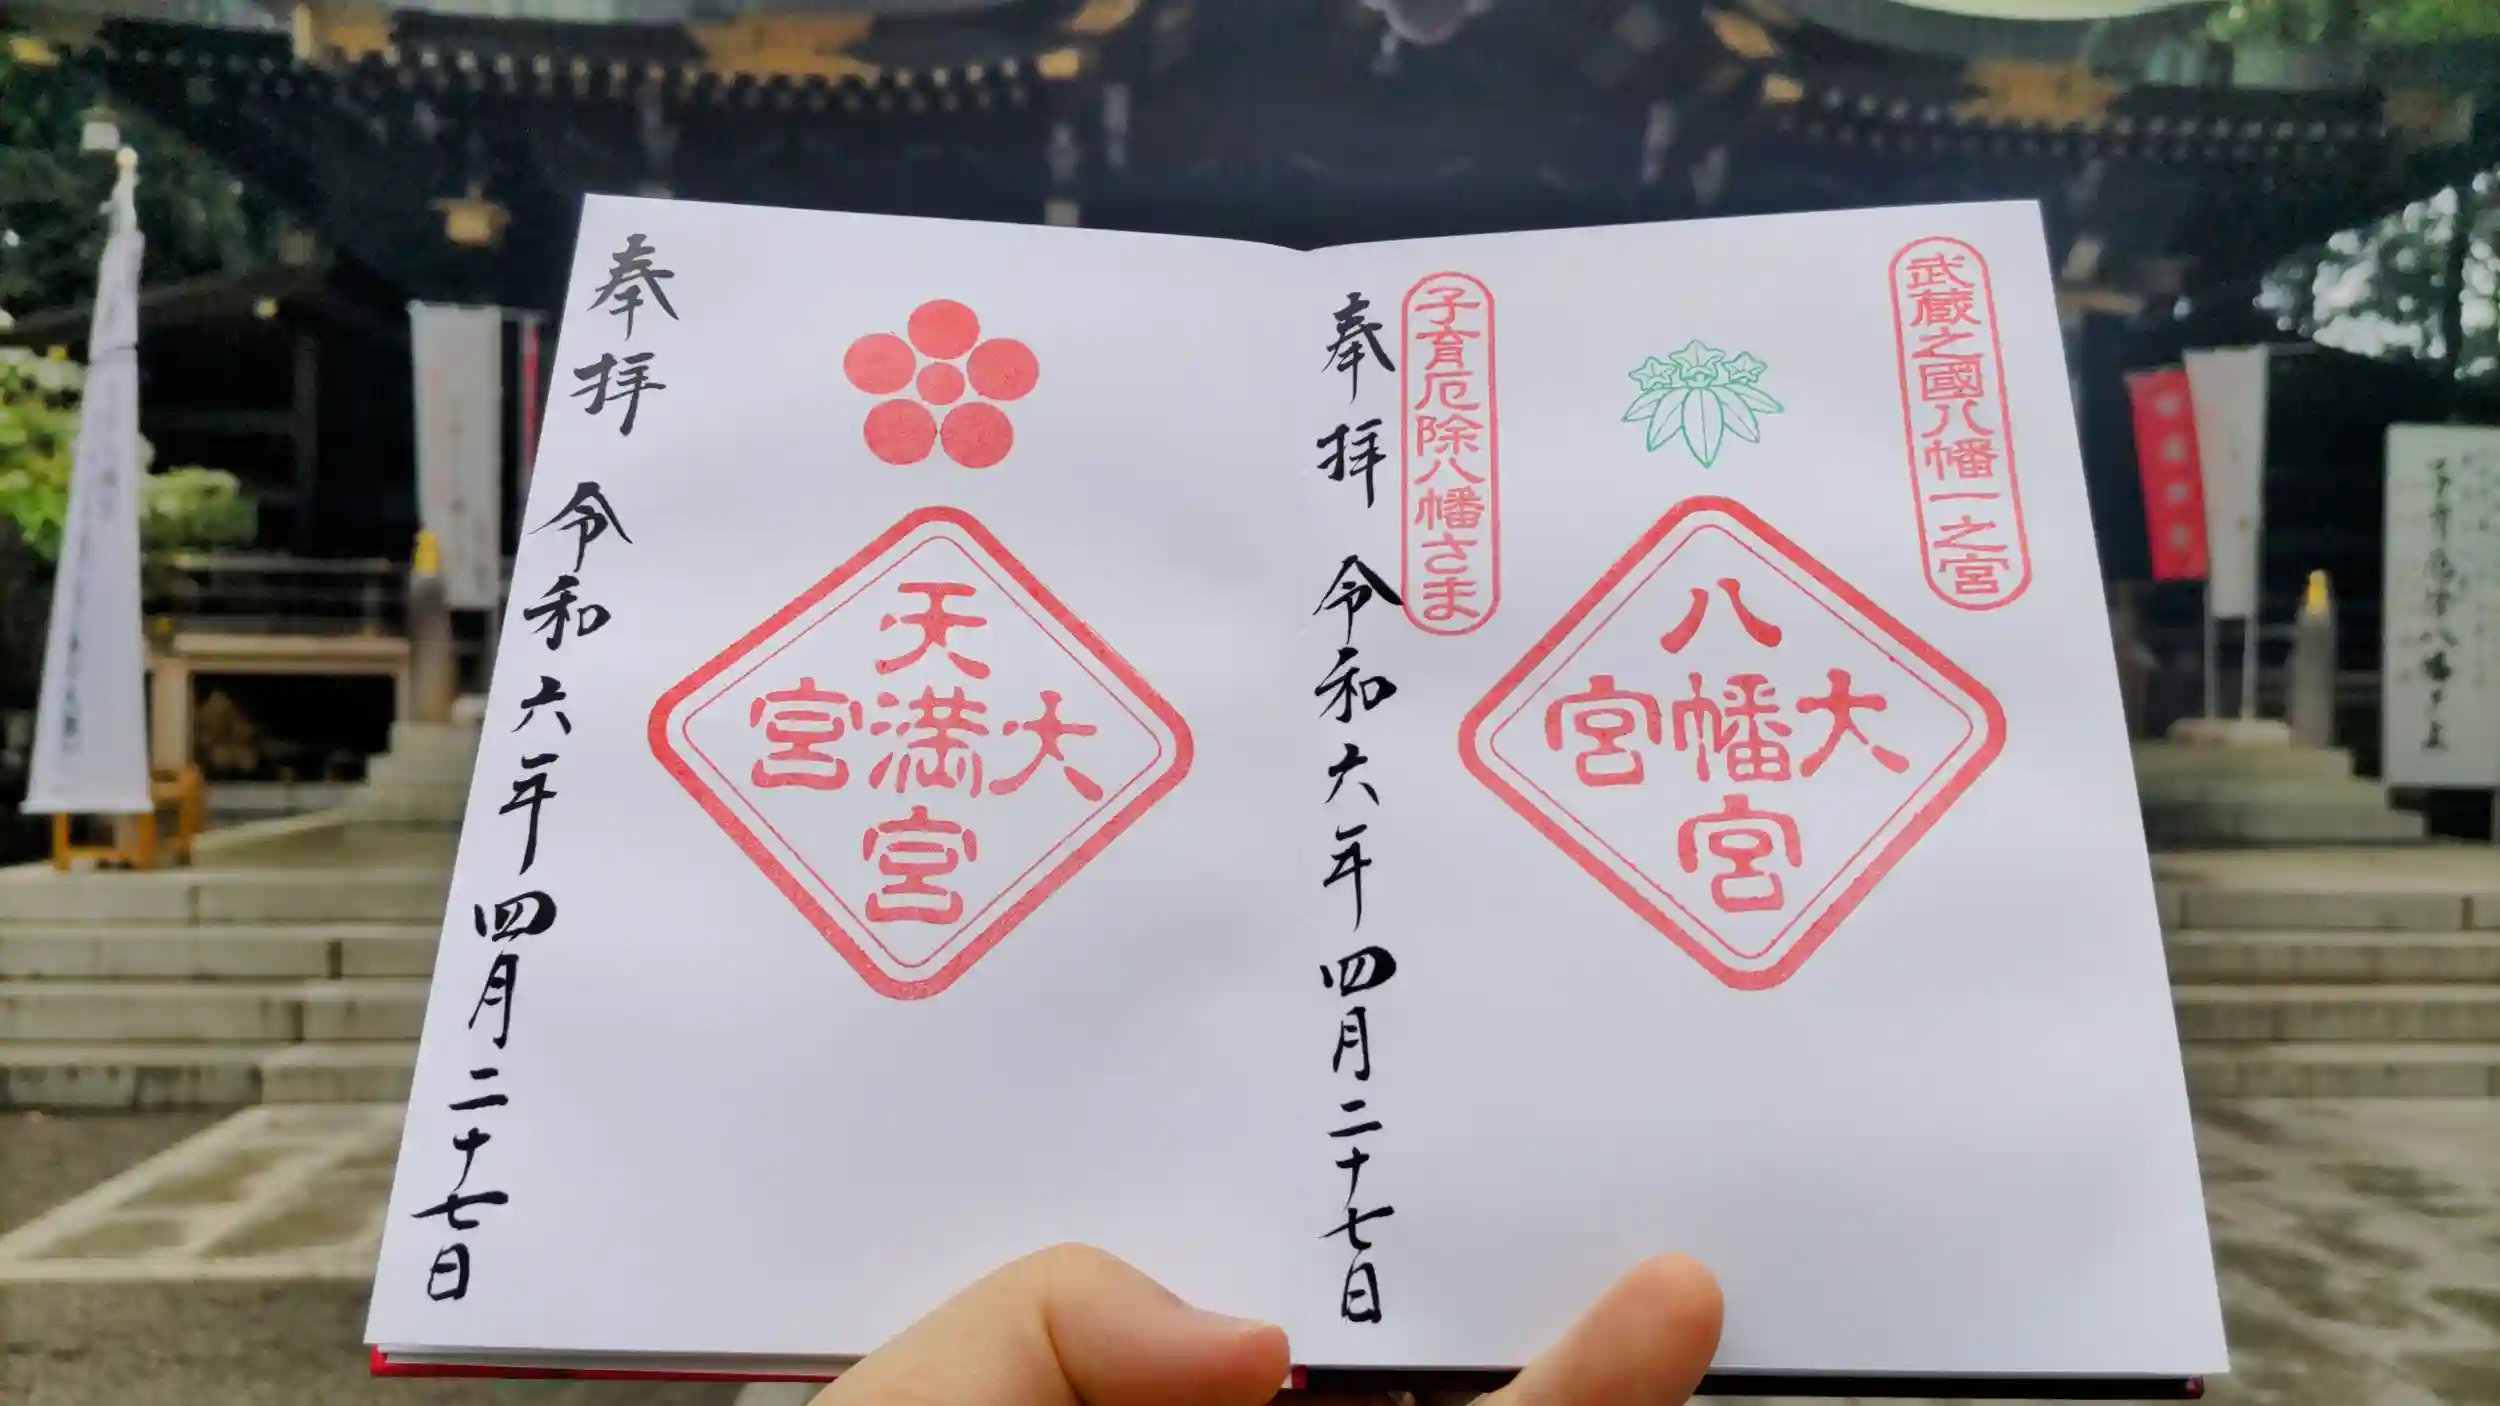 武蔵之國八幡一之宮
大宮
八幡宮
子育厄除八幡さま
奉拝 令和六年四月二十七日
大宮
天満宮
奉拝 令和六年四月二十七日